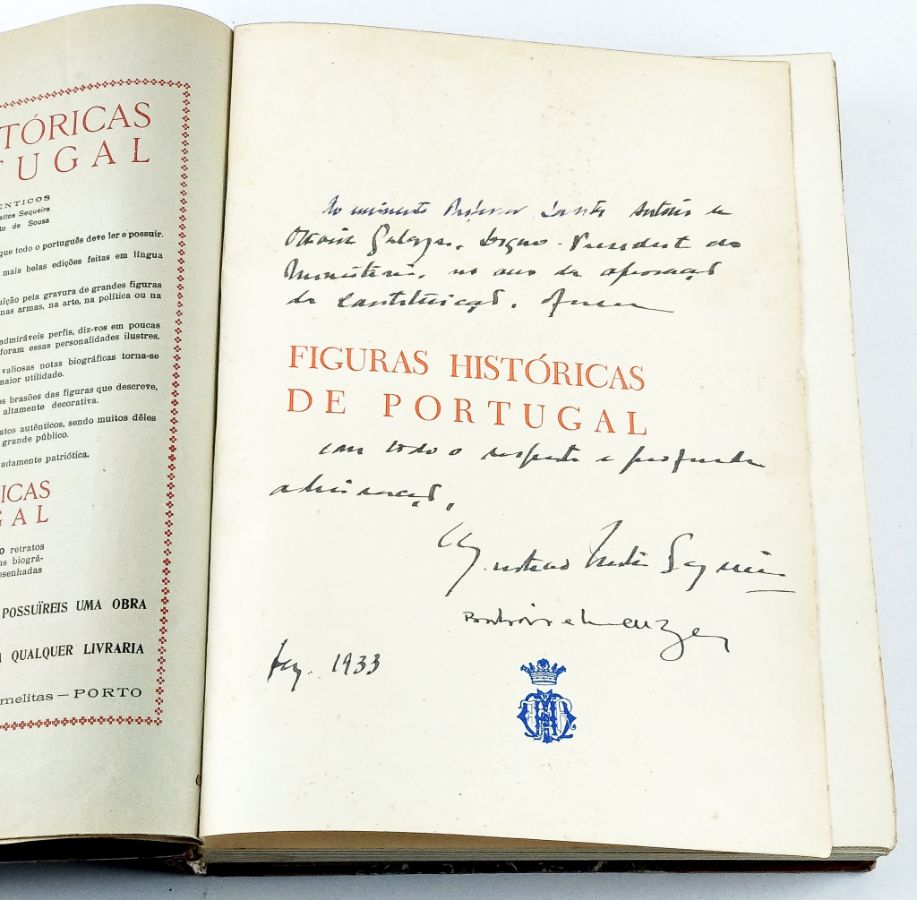 TÓRICAS
TUGAL
ÊNTICOS
attos Sequeira
to de Sousa
que todo o português deve ler e possuir.
mais belas edições feitas em língua
uição pela gravura de grandes figuras
nas armas, na arte, na política ou na
admiráveis perfis, diz-vos em poucas
foram essas personalidades ilustres.
valiosas notas biográficas torna-se
maior utilidade.
os brasões das figuras que descreve,
altamente decorativa.
atos autênticos, sendo muitos dêles
grande público.
adamente patriótica.
ICAS
GAL
O retratos
as biográ-
esenhadas
POSSUÍREIS UMA OBRA
QUALQUER LIVRARIA
melitas — PORTO
Ao eminente Professor Doutor António de
Oliveira Salazar, Digno Presidente do
Ministério, no ano da aprovação
da Constituição,
FIGURAS HISTÓRICAS
DE PORTUGAL
com todo o respeito e profunda
admiração,
Gustavo Matos Sequeira
1933